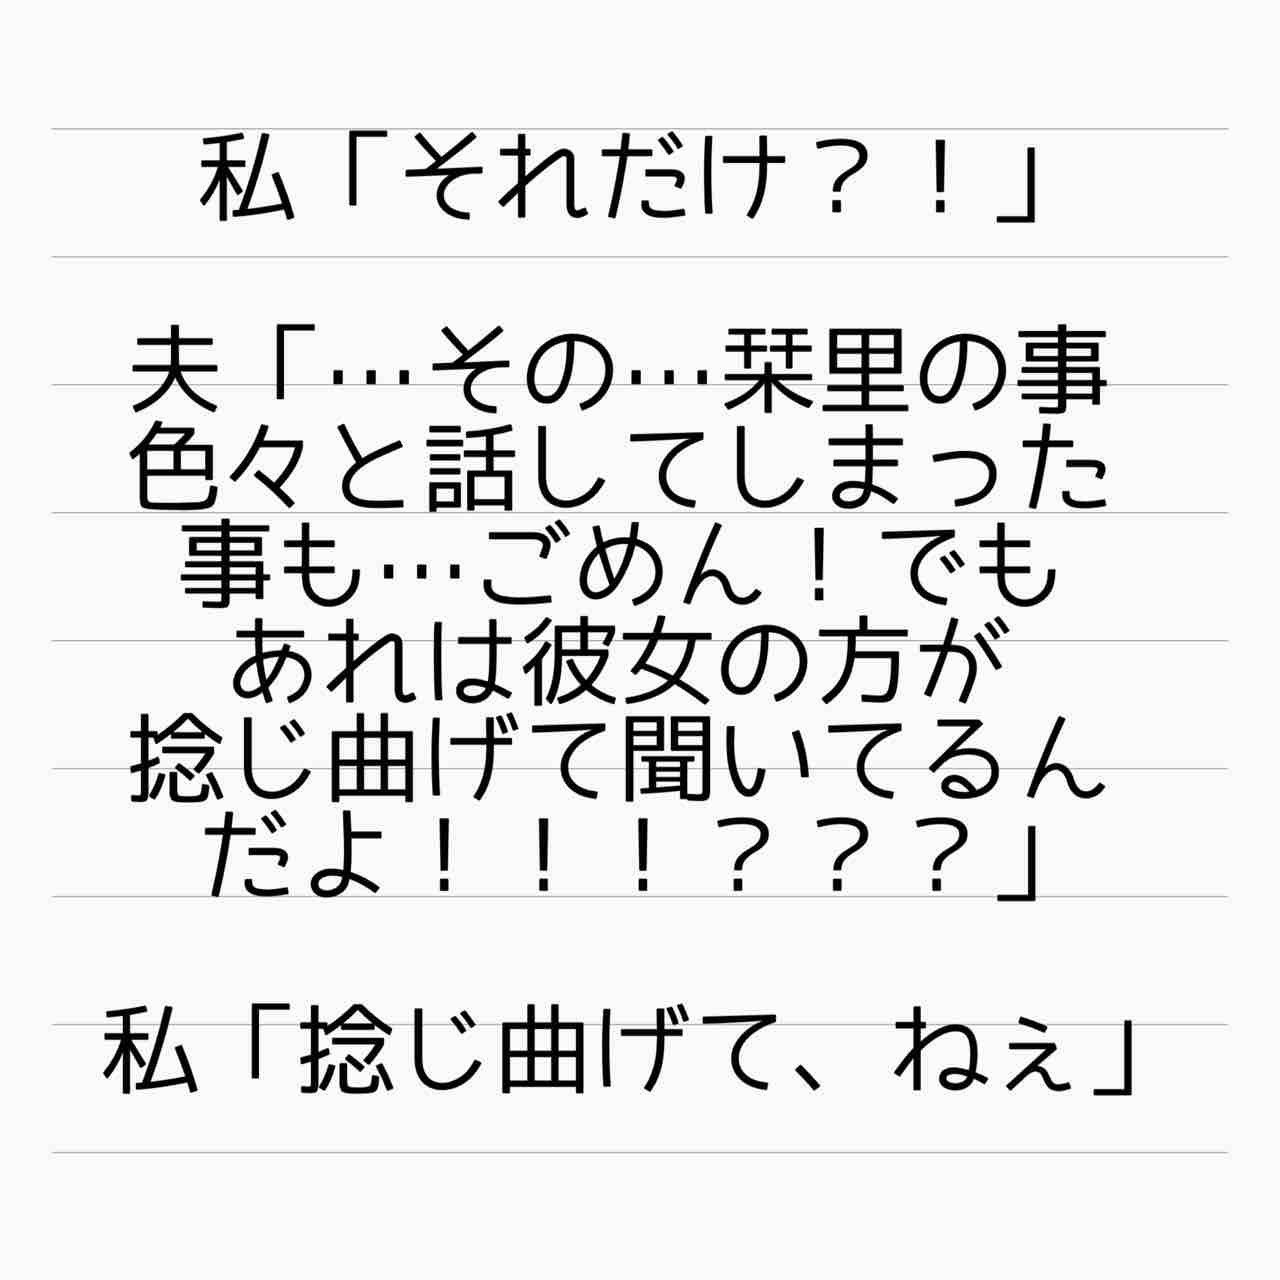 私「それだけ？！」
夫「…その…栞里の事
色々と話してしまった
事も…ごめん！でも
あれは彼女の方が
捻じ曲げて聞いてるん
だよ！！！？？？」
私「捻じ曲げて、ねぇ」